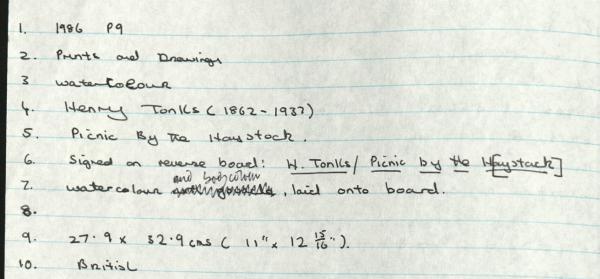 1. 1986 P9
2. Prints and Drawings
3 watercolour
4. Henry Tonks (1862-1937)
5. Picnic By the Haystack.
6. Signed on reverse board: H. Tonks/ Picnic by the H[aystack]
7. watercolour and bodycolour, laid onto board.
8.
9. 27.9 x 32.9 cms ( 11" x 12 15/16").
10. British